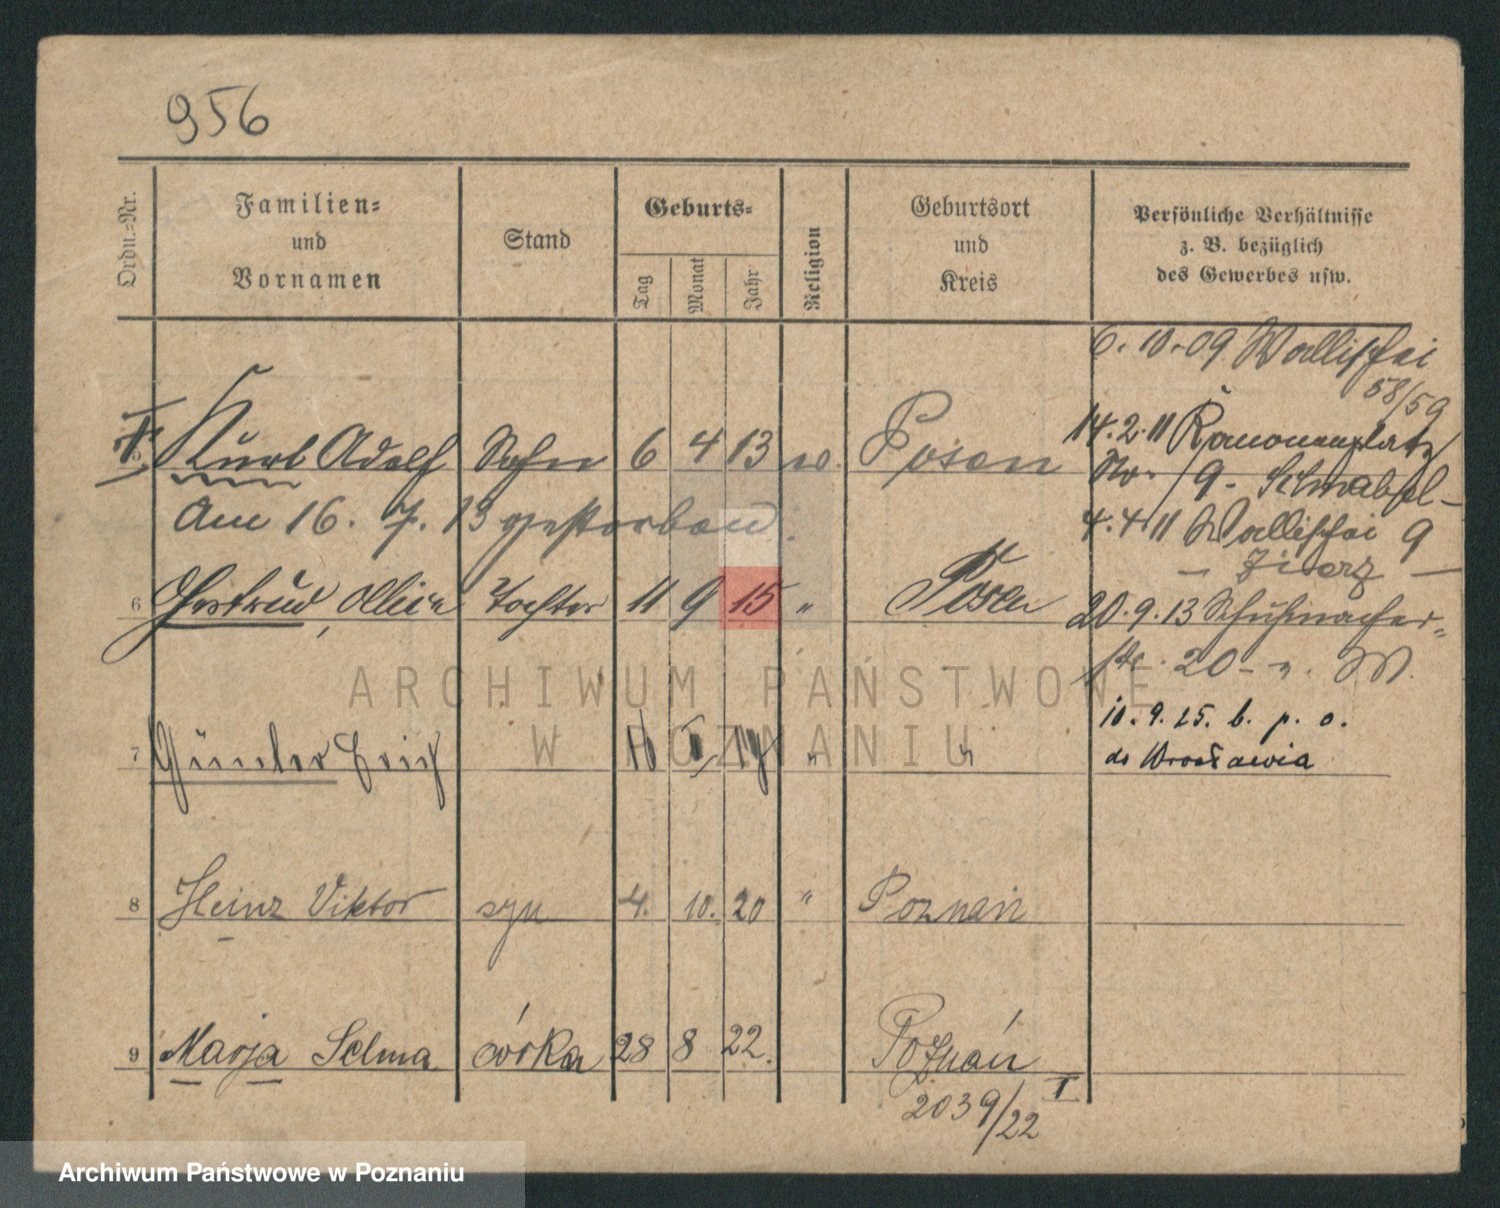 956
Ordn.-Nr.
Familien-
und
Vornamen
Stand
Geburts-
Tag
Monat
Jahr
Religion
Geburtsort
und
Kreis
Persönliche Verhältnisse
z. B. bezüglich
des Gewerbes usw.
6.10.09 Wallischei
58/59
Kurt Adolf Sohn 6 4 13 Posen
14.2.11
9
Am 16. 7. 13 gestorben.
4.4.11 Wallischei 9
6 Gertrud, Tochter 11 9 15 " Posen
20.9.13 Schuhmacher-
20
ARCHIWUM PAŃSTWOWE
W POZNANIU
10. 9. 25. b. p. o.
do Wrocławia
7 Günter Erich " "
8 Heinz Viktor syn 4. 10. 20 " Poznań
9 Marja Selma córka 28 8 22. Poznań
I
2039/22
Archiwum Państwowe w Poznaniu